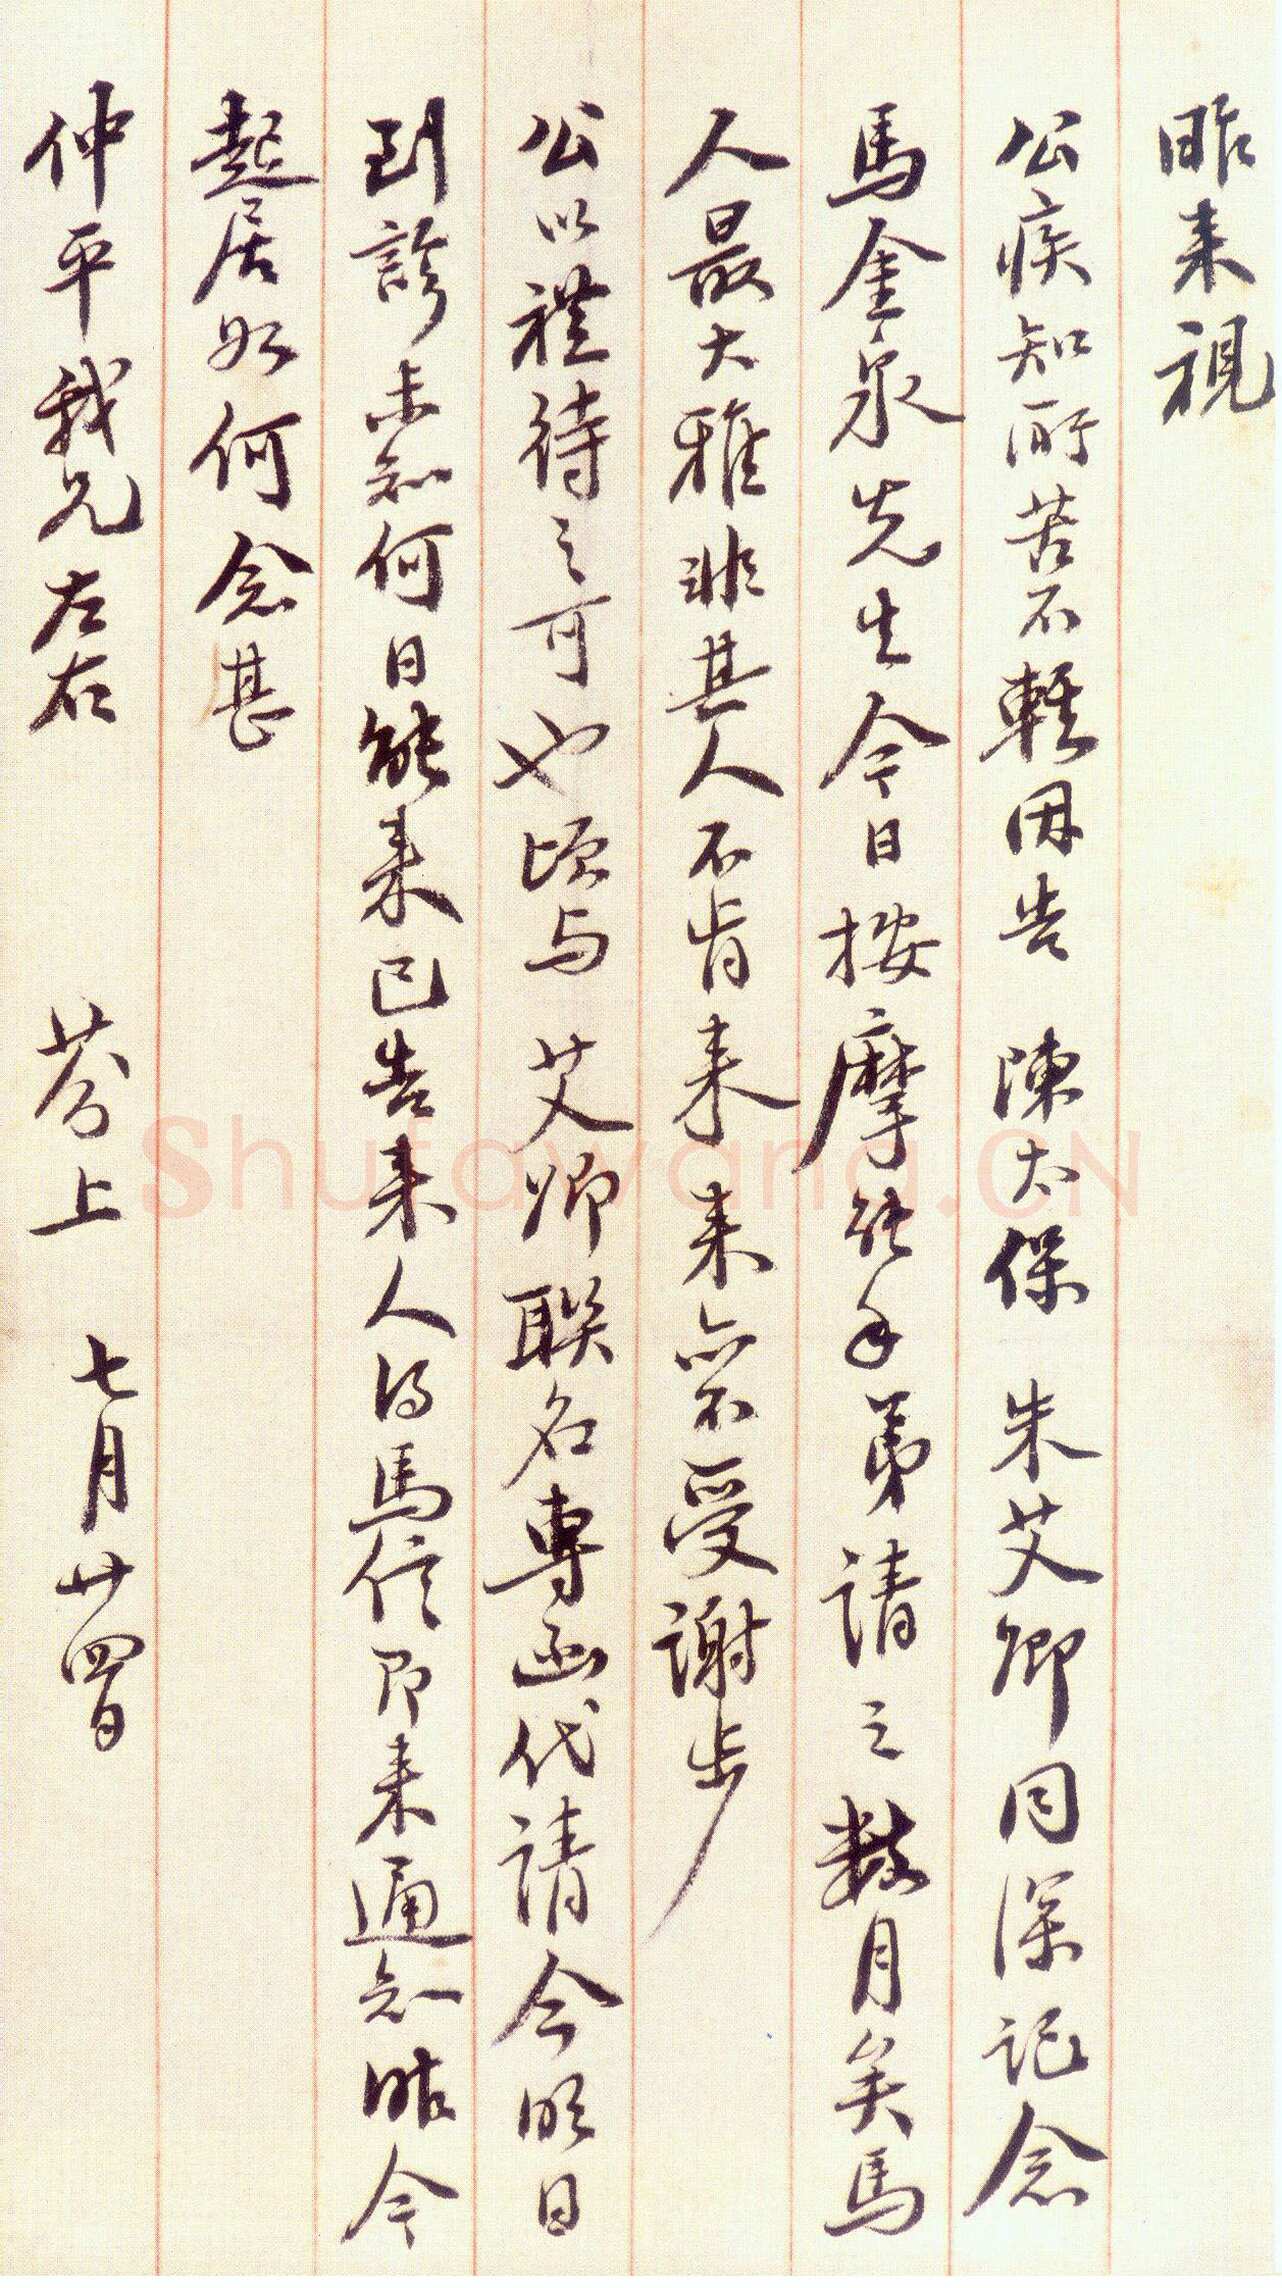 昨来視
公疾知所苦不輕因告 陳太保 朱艾卿同深記念
馬金泉先生今日按摩能手弟請之數月矣馬
人最大雅非其人不肯来来亦不受謝步
公以禮待之可也頃与 艾卿聯名專函代請今明日
到診未知何日能来已告来人得馬信即来通知昨今
起居如何念甚
仲平我兄左右 芬上 七月廿四日
Shufawang.CN